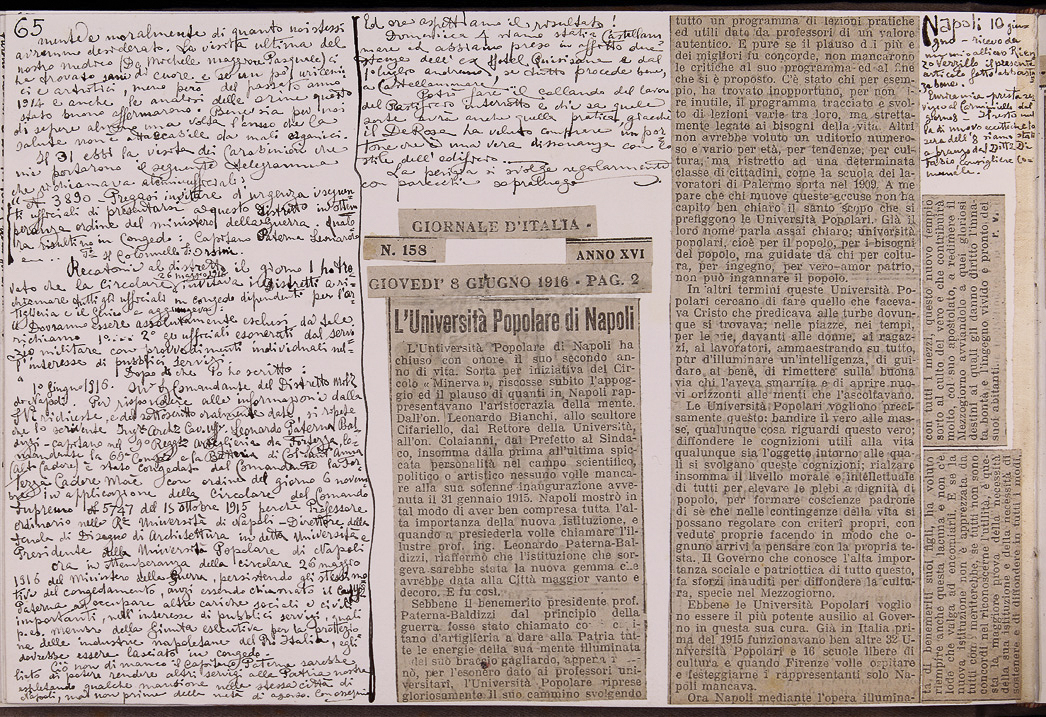 65
mente e moralmente di quanto noi stessi
avremmo desiderato. La visita ultima del
nostro medico (Da Michele mazzone Pasquale) ci
ha trovato sani di cuore e se un po' uricemi-
ci e artritici, meno però del passato anno
1914 e anche le analisi delle orine questo
stato buono affermarono. Bene sia per noi
di sapere una volta l'anno che la
salute non è da mali organici.
Il 31 ebbi la visita dei Carabinieri che
mi portarono il seguente telegramma
che richiamava alcuni ufficiali:
"N. 3890 - Pregasi invitare d'urgenza i seguen-
ti ufficiali di presentarsi a questo distretto in ottem-
peranza ordine del ministero della Guerra, qualo-
ra risultino in Congedo: Capitano Paterna Leonardo
e.... Il Colonnello
Recatomi al distretto il giorno 1 ho tro-
vato che la Circolare 26 maggio 1916 invitava i distretti a ri-
chiamare tutti gli ufficiali in congedo dipendenti per l'ar-
tiglieria e il Genio e aggiungeva:
Dovranno essere assolutamente esclusi da tale
richiamo 1o... 2o gli ufficiali esonerati dal servi-
zio militare con provvedimenti individuali nel-
l'interesse di pubblici servizi.
Dopo di che io ho scritto:
1o Giugno 1916. Sig. Comandante del Distretto Mil.
di Napoli. Per rispondere alle informazioni dalla
S.V. richieste, e dal sottoscritto oralmente date, si ripete
che lo scrivente Ing. Arch. Cav. Uff. Leonardo Paterna Bal-
dizzi - capitano nel 3o Regg. Artiglieria da Fortezza, co-
mandante la 69a Comp. e la Batteria di Col
(Alto Cadore) è stato congedato dal Comando la For-
tezza Cadore Maè con ordine del giorno 6 novem-
bre in applicazione della Circolare del Comando
Supremo N 5747 del 15 ottobre 1915 perchè Professore
ordinario nella Ra Università di Napoli - Direttore della
Scuola di Disegno di Architettura in detta Università e
Presidente della Università Popolare di Napoli
Ora in ottemperanza della circolare 26 maggio
1916 del Ministero della Guerra, persistendo gli stessi mo-
tivi del congedamento, anzi essendo chiamato il Cap.
Paterna ad occupare altre cariche sociali e civili
importanti, nell'interesse di pubblici servizi, quali
pes. membro della Giunta esecutiva per la protezio-
ne delle industrie napoletane del Pro Italia, egli
dovrebbe essere lasciato in congedo.
Ciò non di manco il Capitano Paterna sarebbe
lieto di potere rendere altri servigi alla Patria nostra
espletando qualche mansione nella stessa città di
Napoli, non prima della metà di agosto. Con ossequio
Ed ora aspettiamo il risultato!
Domenica 4 siamo stati a Castellam-
mare ed abbiamo preso in affitto due
stanze dell'ex Hotel Quisisana e dal
1o luglio andremo, se tutto procede bene,
a Castellammare.
Potrò fare il collando del lavoro
del Pastificio interrotto e chi sa quale
parte avrà anche quella pratica giacchè
il De Rosa ha voluto comprare un por-
tone che è una vera dissonanza con lo
stile dell'edificio.
La perizia si svolge regolarmente
con parecchi sopraluoghi.
GIORNALE D'ITALIA -
N. 158
ANNO XVI
GIOVEDI' 8 GIUGNO 1916 - PAG. 2
L'Università Popolare di Napoli
L'Università Popolare di Napoli ha
chiuso con onore il suo secondo an-
no di vita. Sorta per iniziativa del Cir-
colo « Minerva », riscosse subito l'appog-
gio ed il plauso di quanti in Napoli rap-
presentavano l'aristocrazia della mente.
Dall'on. Leonardo Bianchi, allo scultore
Cifariello, dal Rettore della Università,
all'on. Colaianni, dal Prefetto al Sinda-
co, insomma dalla prima all'ultima spic-
cata personalità nel campo scientifico,
politico o artistico nessuno volle manca-
re alla sua solenne inaugurazione avve-
nuta il 31 gennaio 1915. Napoli mostrò in
tal modo di aver ben compresa tutta l'al-
ta importanza della nuova istituzione, e
quando a presiederla volle chiamare l'il-
lustre prof. ing. Leonardo Paterna-Bal-
dizzi, riaffermò che l'istituzione che sor-
geva sarebbe stata la nuova gemma che
avrebbe data alla Città maggior vanto e
decoro. E fu così.
Sebbene il benemerito presidente prof.
Paterna-Baldizzi dal principio della
guerra fosse stato chiamato co
tano d'artiglieria a dare alla Patria tut-
te le energie della sua mente illuminata
e del suo braccio gagliardo, appena
nò, per l'esonero dato ai professori uni-
versitari, l'Università Popolare riprese
gloriosamente il suo cammino svolgendo
tutto un programma di lezioni pratiche
ed utili date da professori di un valore
autentico. E pure se il plauso dei più e
dei migliori fu concorde, non mancarono
le critiche al suo programma ed al fine
che si è proposto. C'è stato chi per esem-
pio, ha trovato inopportuno, per non di-
re inutile, il programma tracciato e svol-
to di lezioni varie tra loro, ma stretta-
mente legate ai bisogni della vita. Altri
non avrebbe voluto un uditorio numero-
so e vario per età, per tendenze, per cul-
tura, ma ristretto ad una determinata
classe di cittadini, come la scuola dei la-
voratori di Palermo sorta nel 1909. A me
pare che chi muove queste accuse non ha
capito ben chiaro il santo scopo che si
prefiggono le Università Popolari. Già il
loro nome parla assai chiaro; università
popolari, cioè per il popolo, per i bisogni
del popolo, ma guidate da chi per coltu-
ra, per ingegno, per vero amor patrio,
no, può ingannare il popolo.
In altri termini queste Università Po-
polari cercano di fare quello che faceva-
va Cristo che predicava alle turbe dovun-
que si trovava; nelle piazze, nei tempi,
per le vie, davanti alle donne, ai ragaz-
zi, ai lavoratori, ammaestrando su tutto,
pur d'illuminare un'intelligenza, di gui-
dare, al bene, di rimettere sulla buona
via chi l'aveva smarrita e di aprire nuo-
vi orizzonti alle menti che l'ascoltavano.
Le Università Popolari vogliono preci-
samente questo: bandire il vero alle mas-
se, qualunque cosa riguardi questo vero;
diffondere le cognizioni utili alla vita
qualunque sia l'oggetto intorno alle qua-
li si svolgano queste cognizioni; rialzare
insomma il livello morale e intellettuale
di tutti per elevare le plebi a dignità di
popolo, per formare coscienze padrone
di sè che nelle contingenze della vita si
possano regolare con criteri propri, con
vedute proprie facendo in modo che o-
gnuno arrivi a pensare con la propria te-
sta. Il Governo che conosce l'alta impor-
tanza sociale e patriottica di tutto questo,
fa sforzi inauditi per diffondere la cultu-
ra, specie nel Mezzogiorno.
Ebbene le Università Popolari voglio-
no essere il più potente ausilio al Gover-
no in questa sua cura. Già in Italia pri-
ma del 1915 funzionavano ben altre 32 U-
niversità Popolari e 16 scuole libere di
cultura e quando Firenze volle ospitare
e festeggiarne i rappresentanti solo Na-
poli mancava.
Ora Napoli mediante l'opera illumina-
ta di benemeriti suoi figli, ha voluto
riempire anche questa lacuna e non c'è
lode che valga per costoro. E se la
nuova istituzione non è apprezzata da
tutti come meriterebbe, se tutti non sono
concordi nel riconoscerne l'utilità, è que-
sta la maggior prova della necessità
della sua istituzione e della necessità di
sostenere e di diffondere in tutti i modi,
con tutti i mezzi, questo nuovo tempio
sorto al culto del vero e che contribuirà
molto, col suo apostolato, a redimere il
Mezzogiorno avviandolo a quei gloriosi
destini ai quali gli danno diritto l'inna-
ta bontà e l'ingegno vivido e pronto dei
suoi abitanti.
r. v.
Napoli 10 giu-
gno - ricevo da
un mio allievo Rien-
zo Verzillo il presente
articolo fatto abbastan-
za bene.